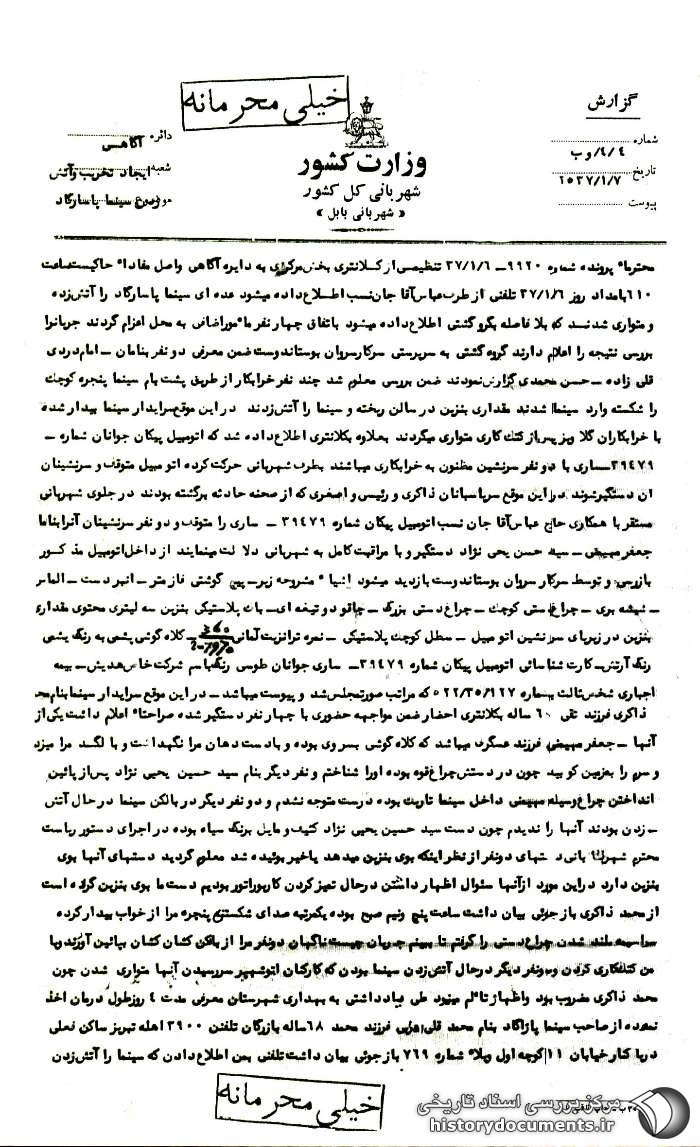 گزارش
خیلی محرمانه
وزارت کشور
شهربانی کل کشور
« شهربانی بابل »
شماره ۴/۴/ وب
تاریخ ۲۵۳۷/۱/۷
پیوست
دائره آگاهی
شعبه ایجاد تخریب وآتش
موضوع سینما پاسارگاد
محترما" پرونده شماره ۹۹۲۰ـ ۳۷/۱/۶ تنظیمی از کلانتری بخش مرکزی به دایره آگاهی واصل مفادا" حاکیست ساعت
۶۱۰ بامداد روز ۳۷/۱/۶ تلفنی از طرف عباس آقا جان نسب اطلاع داده میشود عده ای سینما پاسارگاد را آتش زده
و متواری شدند که بلا فاصله بگروگشتی اطلاع داده میشود باتفاق چهار نفر ماموراضافی به محل اعزام گردند جریانرا
بررسی نتیجه را اعلام دارند گروه گشتی به سرپرستی سرکار سروان بوستاندوست ضمن معرفی دو نفر بنامان ـ امام دردی
قلی زاده ـ حسن محمدی گزارش نمودند ضمن بررسی معلوم شد چند نفر خرابکار از طریق پشت بام سینما پنجره کوچک
را شکسته وارد سینما شدند مقداری بنزین در سالن ریخته و سینما را آتش زدند در این موقع سرایدار سینما بیدار شده
با خرابکاران گلا ویز پس از کتک کاری متواری میگردند بعلاوه بکلانتری اطلاع داده شد که اتومبیل پیکان جوانان شماره ـ
۳۹۴۷۹ـ ساری با دو نفر سرنشین مظنون به خرابکاری میباشند بطرف شهربانی حرکت کرده اتومبیل متوقف و سرنشینان
آن دستگیر شوند در این موقع سرپاسبانان ذاکری و رئیسی و اصغری که از صحنه حادثه برگشته بودند در جلوی شهربانی
مستقر با همکاری حاج عباس آقا جان نسب اتومبیل پیکان شماره ۳۹۴۷۹ ـ ساری را متوقف و دو نفر سرنشینان آنرا بنامان
جعفر مهیمنی ـ سید حسن یحی نژاد دستگیر و با مراقبت کامل به شهربانی دلا لت مینمایند از داخل اتومبیل مذ کور
بازرسی و توسط سرکار سروان بوستاندوست بازدید میشود اشیا" مشروحه زیرـ پیچ گوشتی فاز متر ـ انبر دست ـ الماس
ـ شیشه بری ـ چراغ دستی کوچک ـ چراغ دستی بزرگ ـ چاقو دو تیغه ای ـ پلاستیکی بنزین سه لیتری محتوی مقداری
بنزین در زیرپای سرنشین اتومبیل ـ سطل کوچک پلاستیکی ـ نمره ترانزیت آلمانی ـ کلاه گوشی پشمی به رنگ پشمی
رنگ آرتش ـ کارت شناسائی اتومبیل پیکان شماره ۳۹۴۷۹ـ ساری جوانان طوسی رنگ باسم شرکت خاص هدیش ـ بیمه
اجباری شخص ثالث بشماره ۵۲۲/۳۵/۹۲۷ که مراتب صورتمجلس شد و پیوست میباشد ـ در این موقع سرایدار سینما بنام محمد
ذاکری فرزند تقی ۶۰ ساله بکلانتری احضار ضمن مواجهه حضوری با چهار نفر دستگیر شده صراحتا" اعلام داشت یکی از
آنها ـ جعفر مهیمنی فرزند عسگری میباشد که کلاه گوشی بسر وی بوده و با دست دهان مرا نگهداشت و با لگد مرا میزد
و سرم را بزمین کوبید چون در دستش چراغ قوه بوده اورا شناختم و نفر دیگر بنام سید حسین یحیی نژاد پس از پائین
انداختن چراغ وسیله مهیمنی داخل سینما تاریک بوده درست متوجه نشدم و دو نفر دیگر در بالکن سینما در حال آتش
ـ زدن بودند آنها را ندیدم چون دست سید حسین یحیی نژاد کثیف و مایل برنگ سیاه بوده در اجرای دستور ریاست
محترم شهربانی دستهای دو نفر از نظر اینکه بوی بنزین میدهد یاخیر بوئیده شد معلوم گردید دستهای آنها بوی
بنزین دارد در این مورد از آنها سئوال اظهار داشتن در حال تمیز کردن کاربوراتور بودیم دست ما بوی بنزین گرفته است
از محمد ذاکری باز جوئی بیان داشت ساعت پنج ونیم صبح بوده یکمرتبه صدای شکستن پنجره مرا از خواب بیدار کرده
سراسیمه بلند شدن چراغ دستی را گرفتم تا ببینم جریان چیست ناگهان دو نفر مرا از بالکن کشان کشان بپائین آوردند و با
من کتک کاری کردن و دو نفر دیگر در حال آتش زدن سینما بودن که کارکنان اتوشهپر سر رسیدن آنها متواری شدن چون
محمد ذاکری مضروب بود و اظهار تا"لم مینمود طی یادداشتی به بهداری شهرستان معرفی مدت ۴ روز طول درمان اخذ
نموده از صاحب سینما پازاگاد بنام محمد قلی فرزند محمد ۶۸ ساله بازرگان تلفن ۳۹۰۰ اهله تبریز ساکن فعلی
دریا کنار خیابان ۱۱ کوچه اول ویلا" شماره ۷۶۹ باز جوئی بیان داشت تلفنی بمن اطلاع دادن که سینما را آتش زدن
خیلی محرمانه
مرکز بررسی اسناد تاریخی
historydocuments.ir